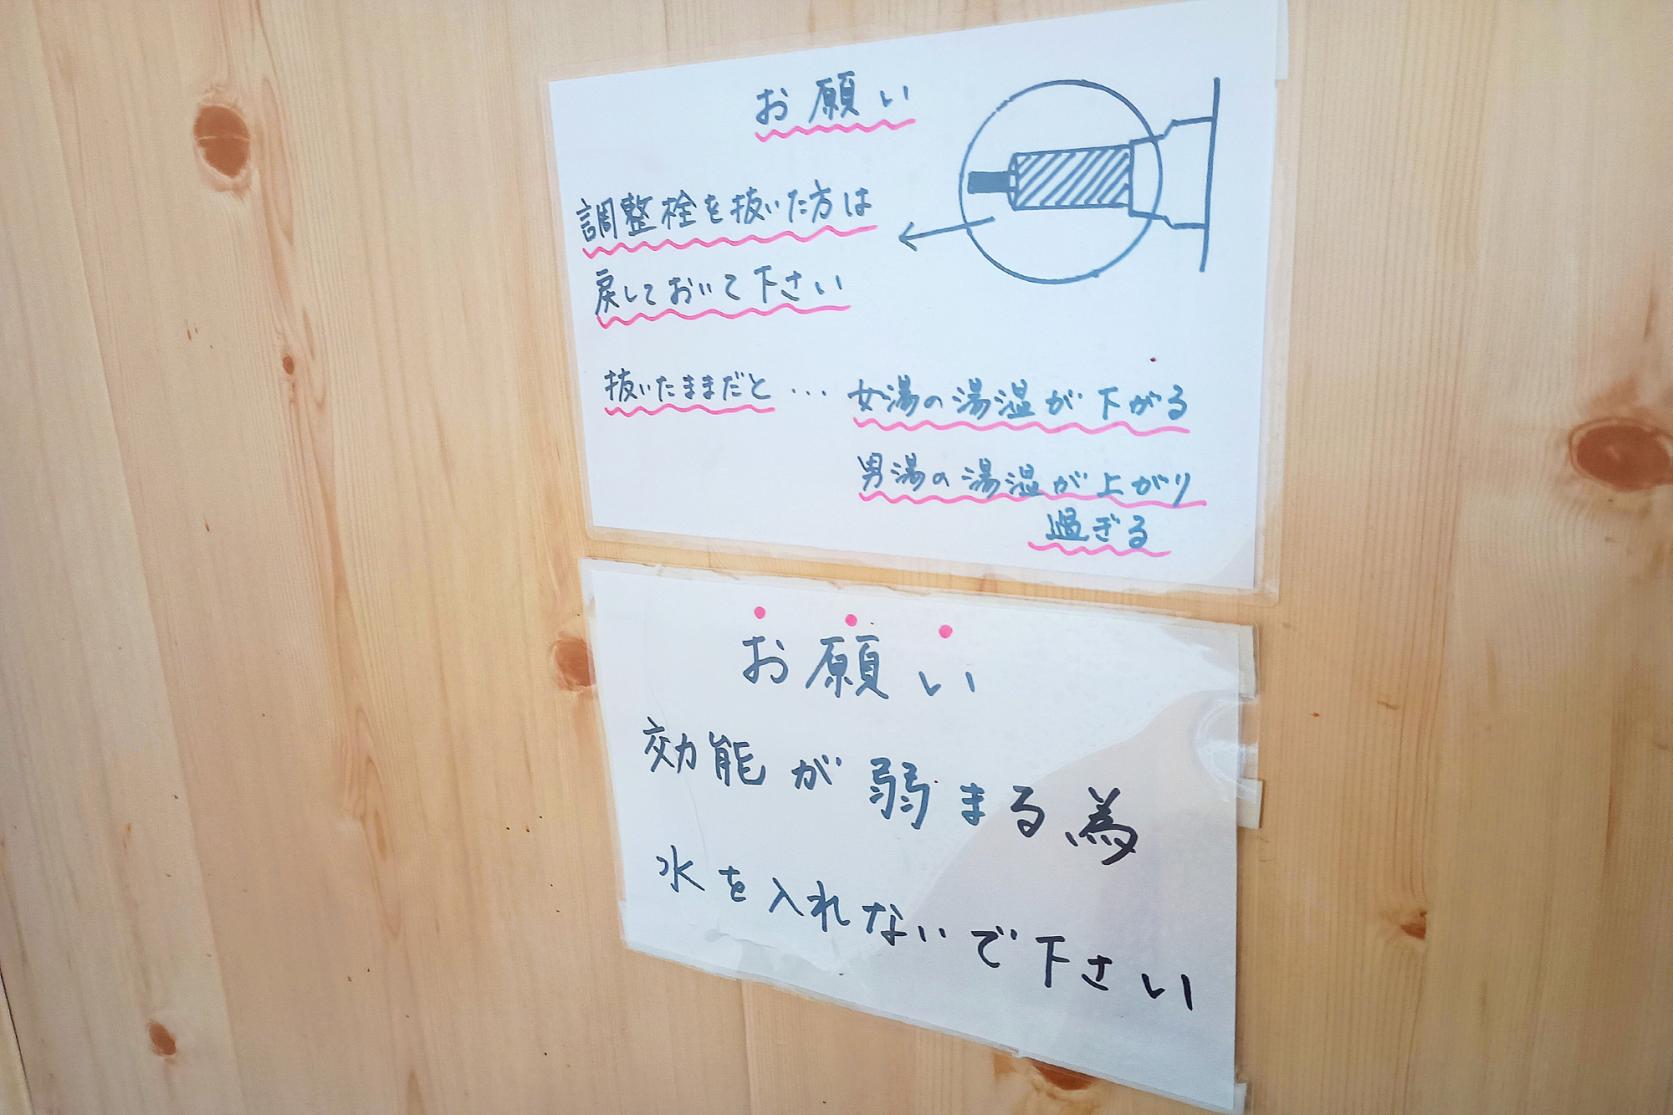 お願い
調整栓を抜いた方は
戻しておいて下さい
抜いたままだと… 女湯の湯温が下がる
男湯の湯温が上がり
過ぎる
お願い
効能が弱まる為
水を入れないで下さい